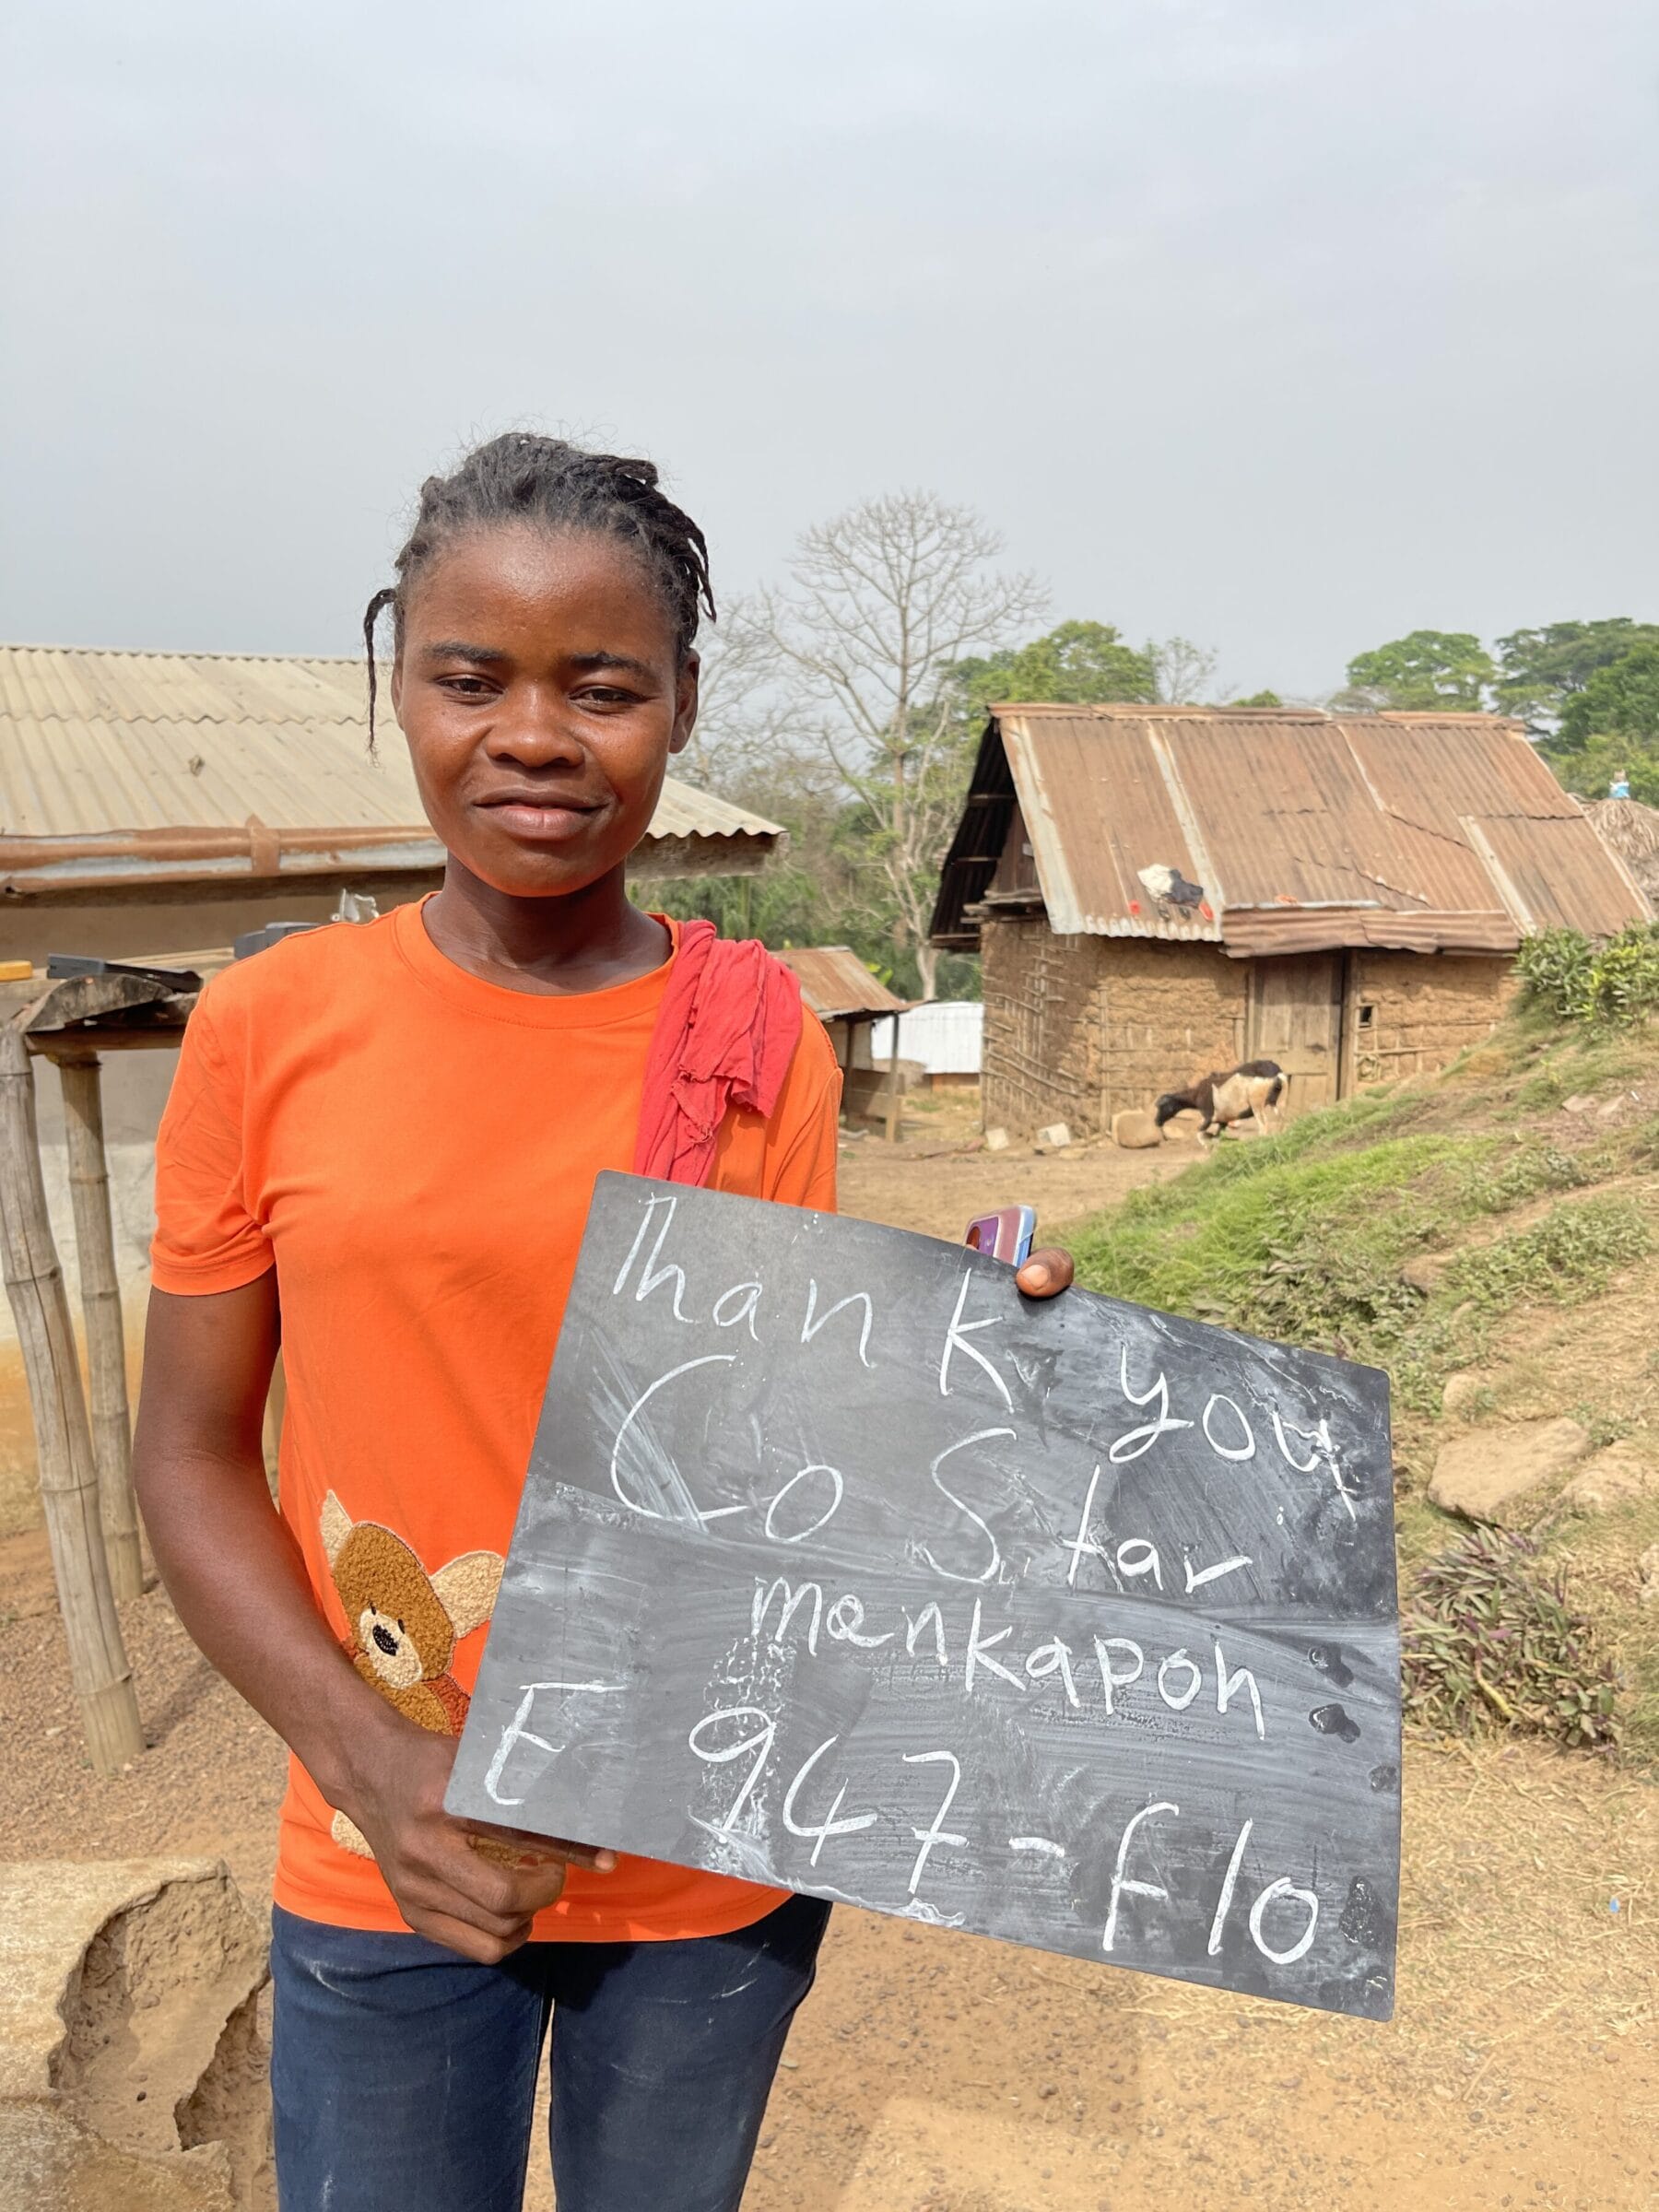 Thank you
Co Star
menkapoh
E 947-flo